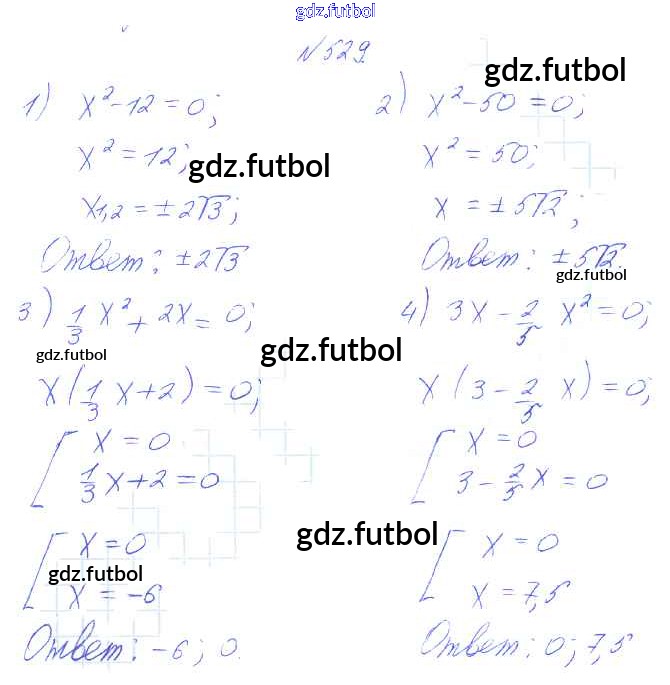 gdz.futbol
№529.
gdz.futbol
1) x²-12=0;
x²=12;
gdz.futbol
x1,2=±2√3;
Ответ: ±2√3
2) x²-50=0;
x²=50;
x=±5√2;
Ответ: ±5√2.
gdz.futbol
3) 1/3 x²+2x=0;
gdz.futbol
gdz.futbol
x(1/3 x+2)=0;
[ x=0
1/3 x+2=0
[ x=0
gdz.futbol
x=-6
Ответ: -6; 0.
4) 3x-2/5 x²=0;
x(3-2/5 x)=0;
[ x=0
3-2/5 x=0
gdz.futbol
[ x=0
x=7,5
Ответ: 0; 7,5